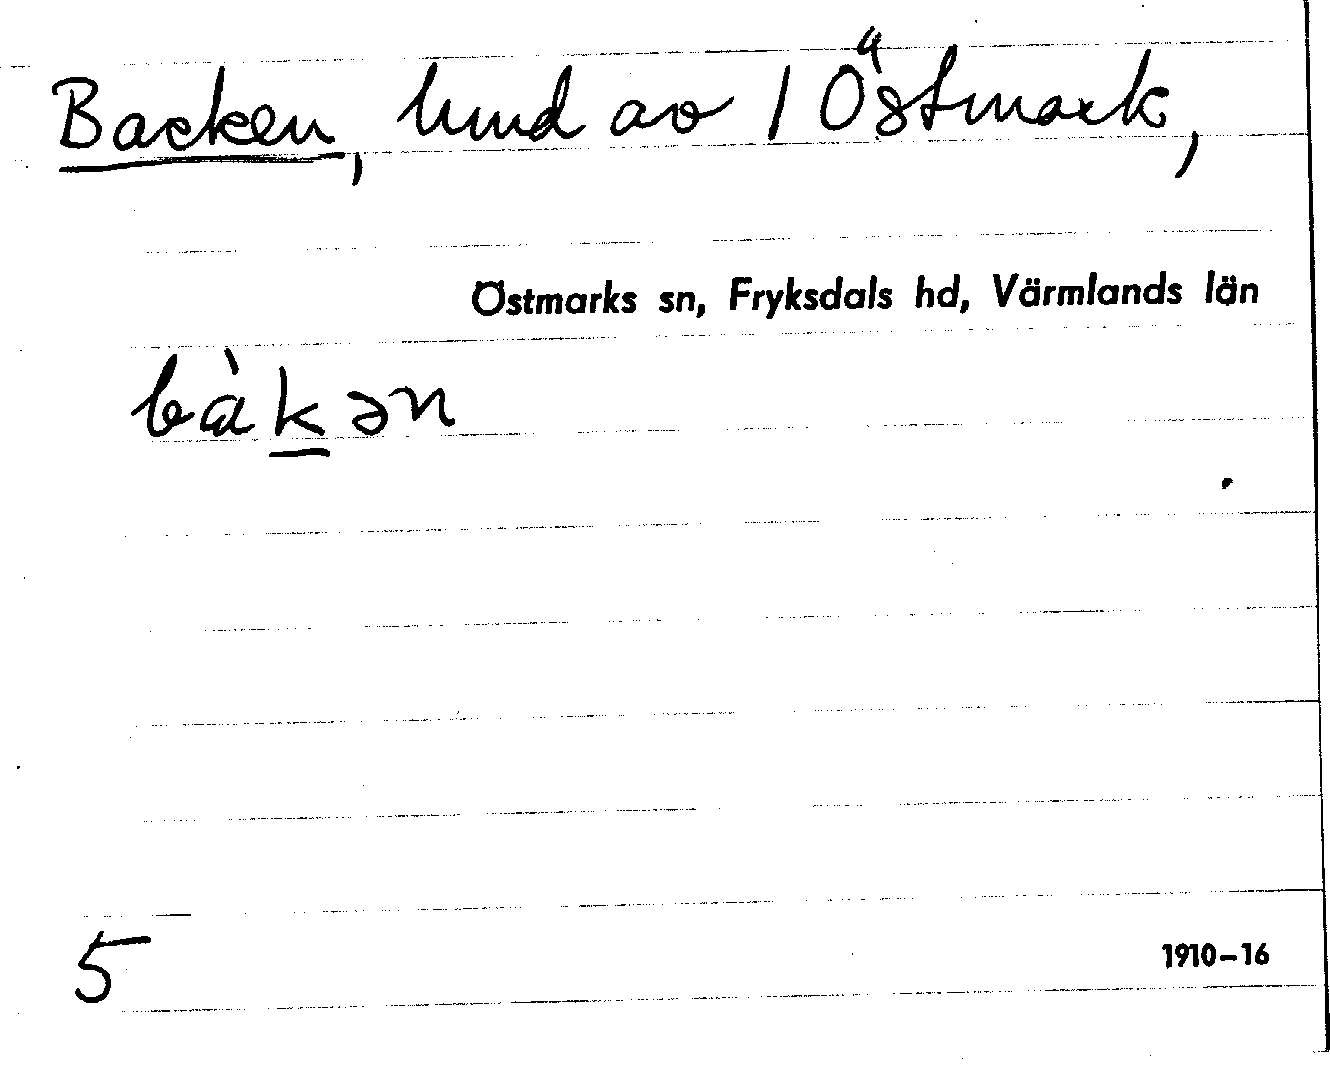 Backen, hmd av 1 Östmark,
Östmarks sn, Fryksdals hd, Värmlands län
bàk̲ən
5
1910–16